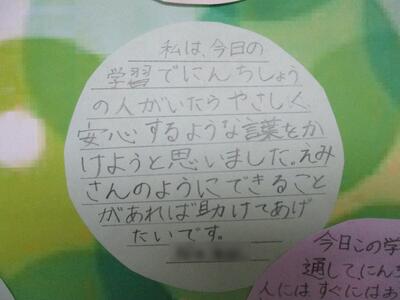 私は、今日の
学習でにんちしょう
の人がいたらやさしく、
安心するような言葉をか
けようと思いました。えみ
さんのようにできること
があれば助けてあげ
たいです。
今日この学
通して、にん
人にはすぐにはお